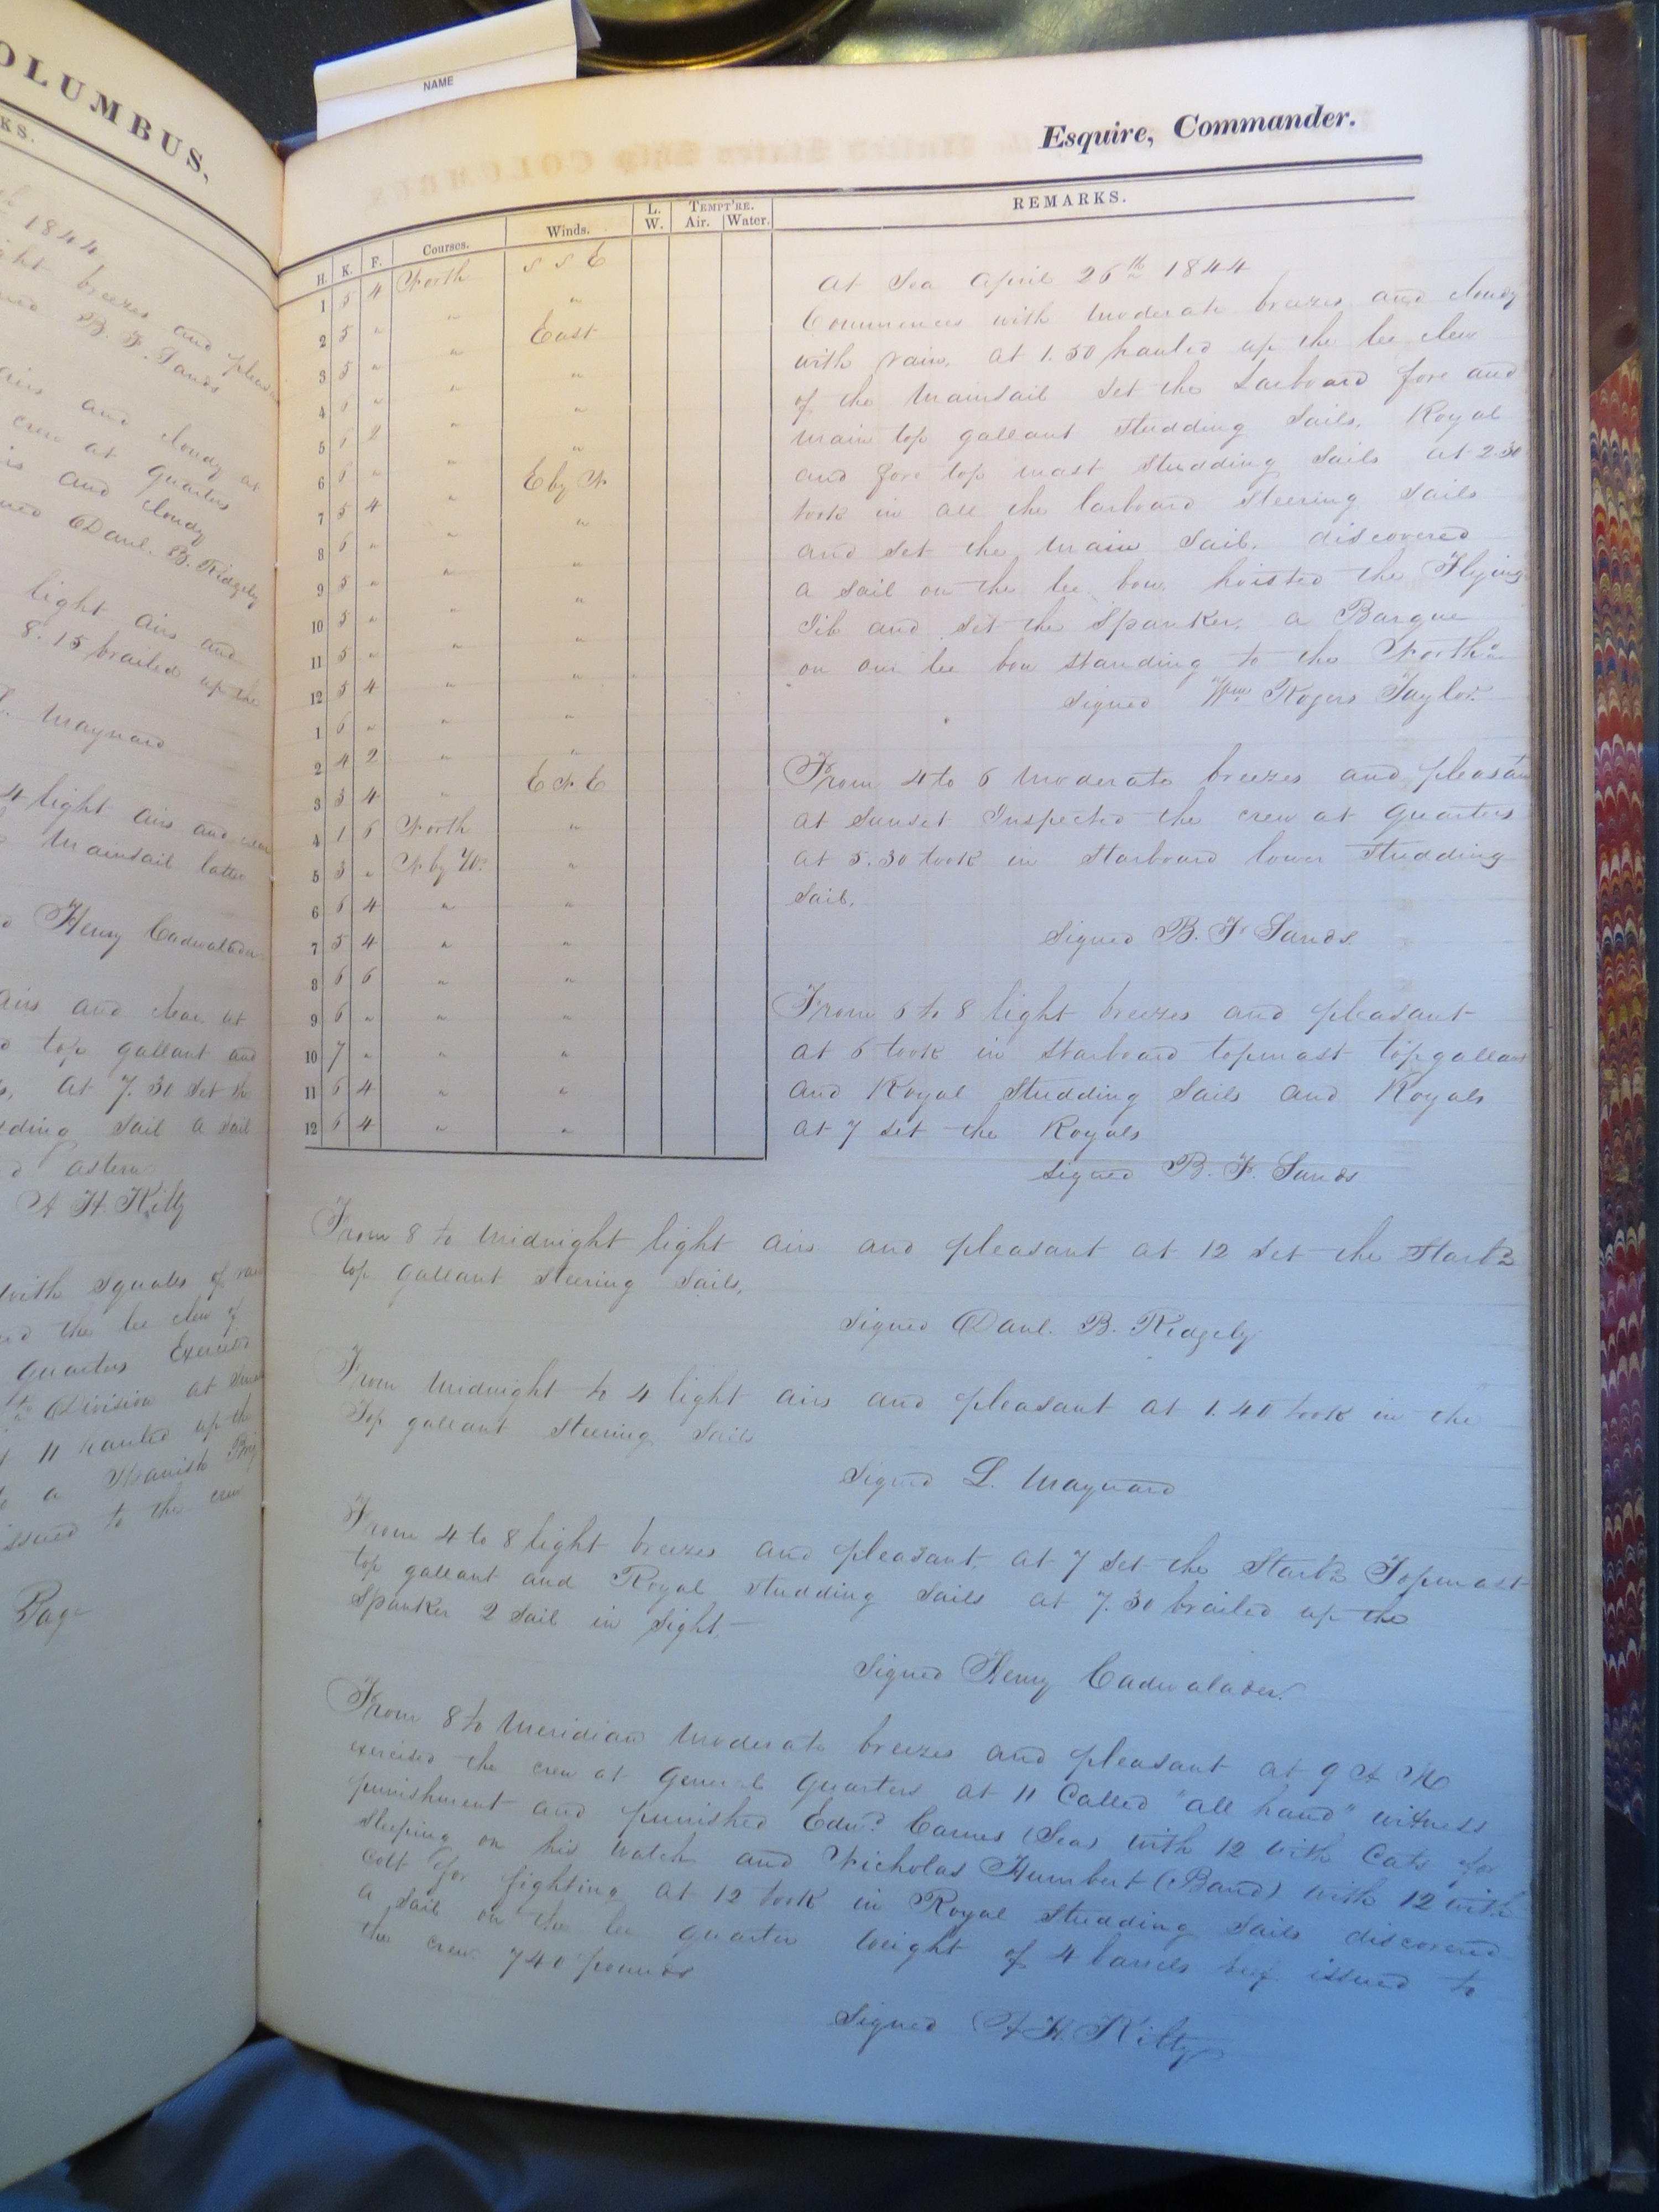 OLUMBUS,
KS.
1844
ght breezes and pleasa
B. F. Sands
airs and cloudy at
crew at quarters
is and cloudy
ned Danl. B. Ridgely
light airs and
8.15 brailed up the
L. Maynard
4 light airs and clear
Mainsail latter
d Henry Cadwalader
airs and clear at
d top gallant and
at 7.30 set the
dding sail a sail
d astern
A H. Kilty
with squalls of rain
ed the lee clew of
quarters Exercised
Division at Sunset
11 hauled up the
to a Spanish Brig
issued to the crew
Page
NAME
Esquire, Commander.
H. K. F. Courses. Winds. L. W. TEMPT'RE. Air. Water. REMARKS.
1 5 4 North S S E
2 5 " " "
3 5 " " East
4 6 " " "
5 6 2 " "
6 6 " " "
7 5 4 " E by N
8 6 " " "
9 5 " " "
10 5 " " "
11 5 " " "
12 5 4 " "
1 6 " " "
2 4 2 " "
3 3 4 " E N E
4 1 6 North "
5 3 " N by W. "
6 6 4 " "
7 5 4 " "
8 6 6 " "
9 6 " " "
10 7 " " "
11 6 4 " "
12 6 4 " "
At Sea April 26th 1844
Commences with moderate breezes and cloudy
with rain. at 1.30 hauled up the lee clew
of the Mainsail set the Larboard fore and
main top gallant studding sails, Royal
and fore top mast studding sails at 2.30
took in all the larboard steering sails
and set the main sail. discovered
a sail on the lee bow. hoisted the Flying
Jib and set the Spanker. a Barque
on our lee bow standing to the Northd
Signed Wm Rogers Taylor.
From 4 to 6 moderate breezes and pleasant
at Sunset Inspected the crew at quarters
at 5.30 took in Starboard lower studding
sail.
Signed B. F. Sands.
From 6 to 8 light breezes and pleasant
at 6 took in starboard topmast topgallant
and Royal Studding sails and Royals
at 7 set the Royals
Signed B. F. Sands
From 8 to Midnight light airs and pleasant at 12 set the Starbd
top gallant steering sails,
Signed Danl. B. Ridgely
From Midnight to 4 light airs and pleasant at 1.40 took in the
Top gallant steering sails
Signed L. Maynard
From 4 to 8 light breezes and pleasant, at 7 set the Starbd Topmast
top gallant and Royal studding sails at 7.30 brailed up the
Spanker 2 sail in sight.—
Signed Henry Cadwalader.
From 8 to Meridian moderate breezes and pleasant at 9 A M
exercised the crew at General Quarters at 11 Called "all hand" witness
punishment and punished Edwd. Carnes (Sea) with 12 with Cats for
sleeping on his watch and Nicholas Humbert (Band) with 12 with
colt for fighting at 12 took in Royal studding sails discovered
a sail on the lee quarter Weight of 4 barrels beef issued to
the crew. 740 pounds
Signed A H. Kilty